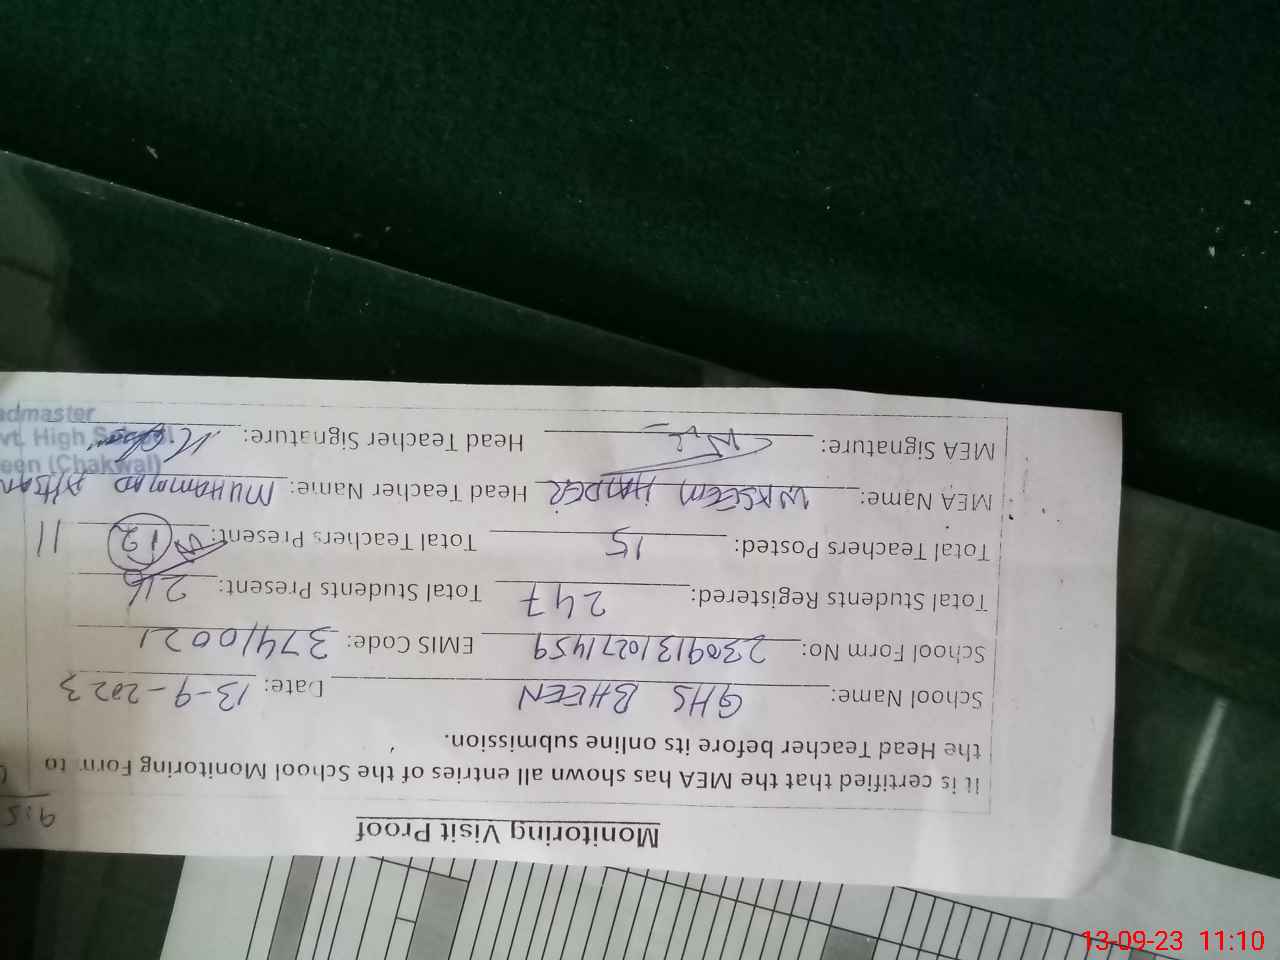 Monitoring Visit Proof
It is certified that the MEA has shown all entries of the School Monitoring Form to
the Head Teacher before its online submission.
School Name: GHS BHEEN Date: 13-9-2023
School Form No: 23091310271459 EMIS Code: 37410021
Total Students Registered: 247 Total Students Present: 216
Total Teachers Posted: 15 Total Teachers Present: 12 11
MEA Name: WASEEM HAIDER Head Teacher Name: MUHAMMAD AHSAN
MEA Signature: Head Teacher Signature:
admaster
vt. High School
een (Chakwal)
13-09-23 11:10